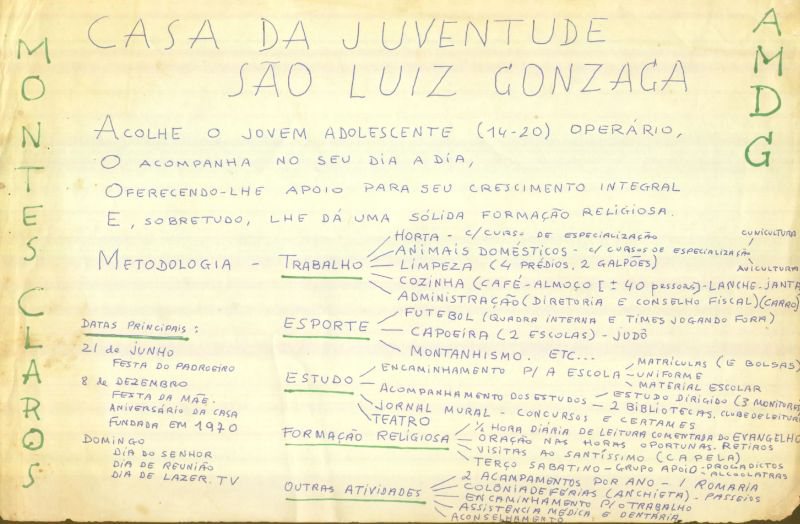 MONTES CLAROS
AMDG
CASA DA JUVENTUDE
SÃO LUIZ GONZAGA
ACOLHE O JOVEM ADOLESCENTE (14-20) OPERÁRIO,
O ACOMPANHA NO SEU DIA A DIA,
OFERECENDO-LHE APOIO PARA SEU CRESCIMENTO INTEGRAL
E, SOBRETUDO, LHE DÁ UMA SÓLIDA FORMAÇÃO RELIGIOSA.
METODOLOGIA - TRABALHO
HORTA - c/ CURSO DE ESPECIALIZAÇÃO
ANIMAIS DOMÉSTICOS - c/ CURSOS DE ESPECIALIZAÇÃO
CUNICULTURA
AVICULTURA
LIMPEZA (4 PRÉDIOS, 2 GALPÕES)
COZINHA (CAFÉ-ALMOÇO [± 40 pessoas]-LANCHE-JANTA
ADMINISTRAÇÃO (DIRETORIA E CONSELHO FISCAL) (CARRO)
ESPORTE
FUTEBOL (QUADRA INTERNA E TIMES JOGANDO FORA)
CAPOEIRA (2 ESCOLAS) - JUDÔ
MONTANHISMO. ETC...
ESTUDO
ENCAMINHAMENTO P/ A ESCOLA
MATRÍCULAS (E BOLSAS)
UNIFORME
MATERIAL ESCOLAR
ACOMPANHAMENTO DOS ESTUDOS
ESTUDO DIRIGIDO (3 MONITORES
2 BIBLIOTECAS, CLUBE DE LEITURA
JORNAL MURAL - CONCURSOS E CERTAMES
TEATRO
FORMAÇÃO RELIGIOSA
½ HORA DIÁRIA DE LEITURA COMENTADA DO EVANGELHO
ORAÇÃO NAS HORAS OPORTUNAS. RETIROS
VISITAS AO SANTÍSSIMO (CAPELA)
TERÇO SABATINO - GRUPO APOIO - DROGADICTOS
ALCOÓLATRAS
OUTRAS ATIVIDADES
2 ACAMPAMENTOS POR ANO - 1 ROMARIA
COLÔNIA DE FÉRIAS (ANCHIETA) - PASSEIOS
ENCAMINHAMENTO P/ O TRABALHO
ASSISTÊNCIA MÉDICA E DENTÁRIA
ACONSELHAMENTO
DATAS PRINCIPAIS:
21 de JUNHO
FESTA DO PADROEIRO
8 de DEZEMBRO
FESTA DA MÃE.
ANIVERSÁRIO DA CASA
FUNDADA EM 1970
DOMINGO
DIA DO SENHOR
DIA DE REUNIÃO
DIA DE LAZER. TV